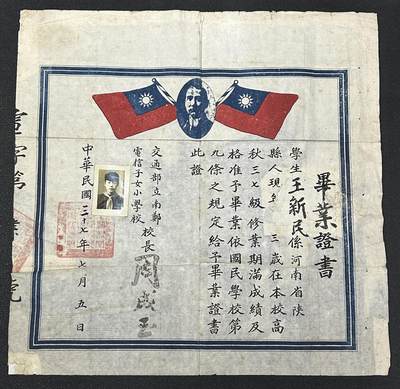 畢業證書
學生王新民係河南省陝
縣人現年三歲在本校高
秋三七級修業期滿成績及
格准予畢業依國民學校第
九條之規定給予畢業證書
此證
交通部立南鄭
電信子女小學校
校長
周成玉
中華民國三十七年七月五日
字第